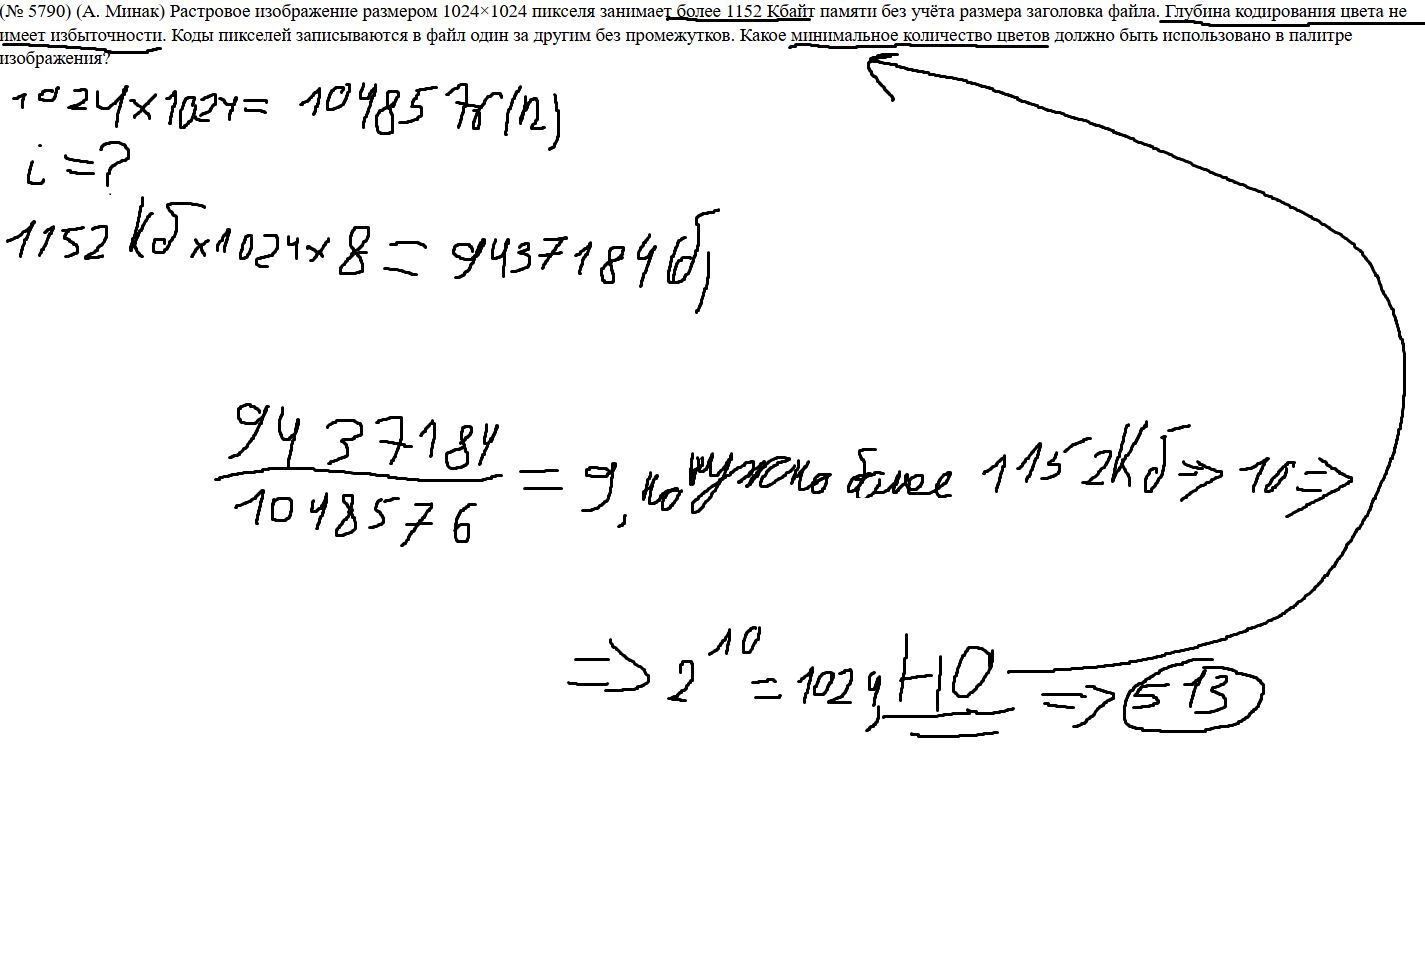 (№ 5790) (А. Минак) Растровое изображение размером 1024×1024 пикселя занимает более 1152 Кбайт памяти без учёта размера заголовка файла. Глубина кодирования цвета не
имеет избыточности. Коды пикселей записываются в файл один за другим без промежутков. Какое минимальное количество цветов должно быть использовано в палитре
изображения?
1024×1024= 1048576(n)
i=?
1152Кб×1024×8=9437184б,
9437184
1048576
=9, но нужно более 1152Кб=>10=>
=>2^10=1024, НО => 513